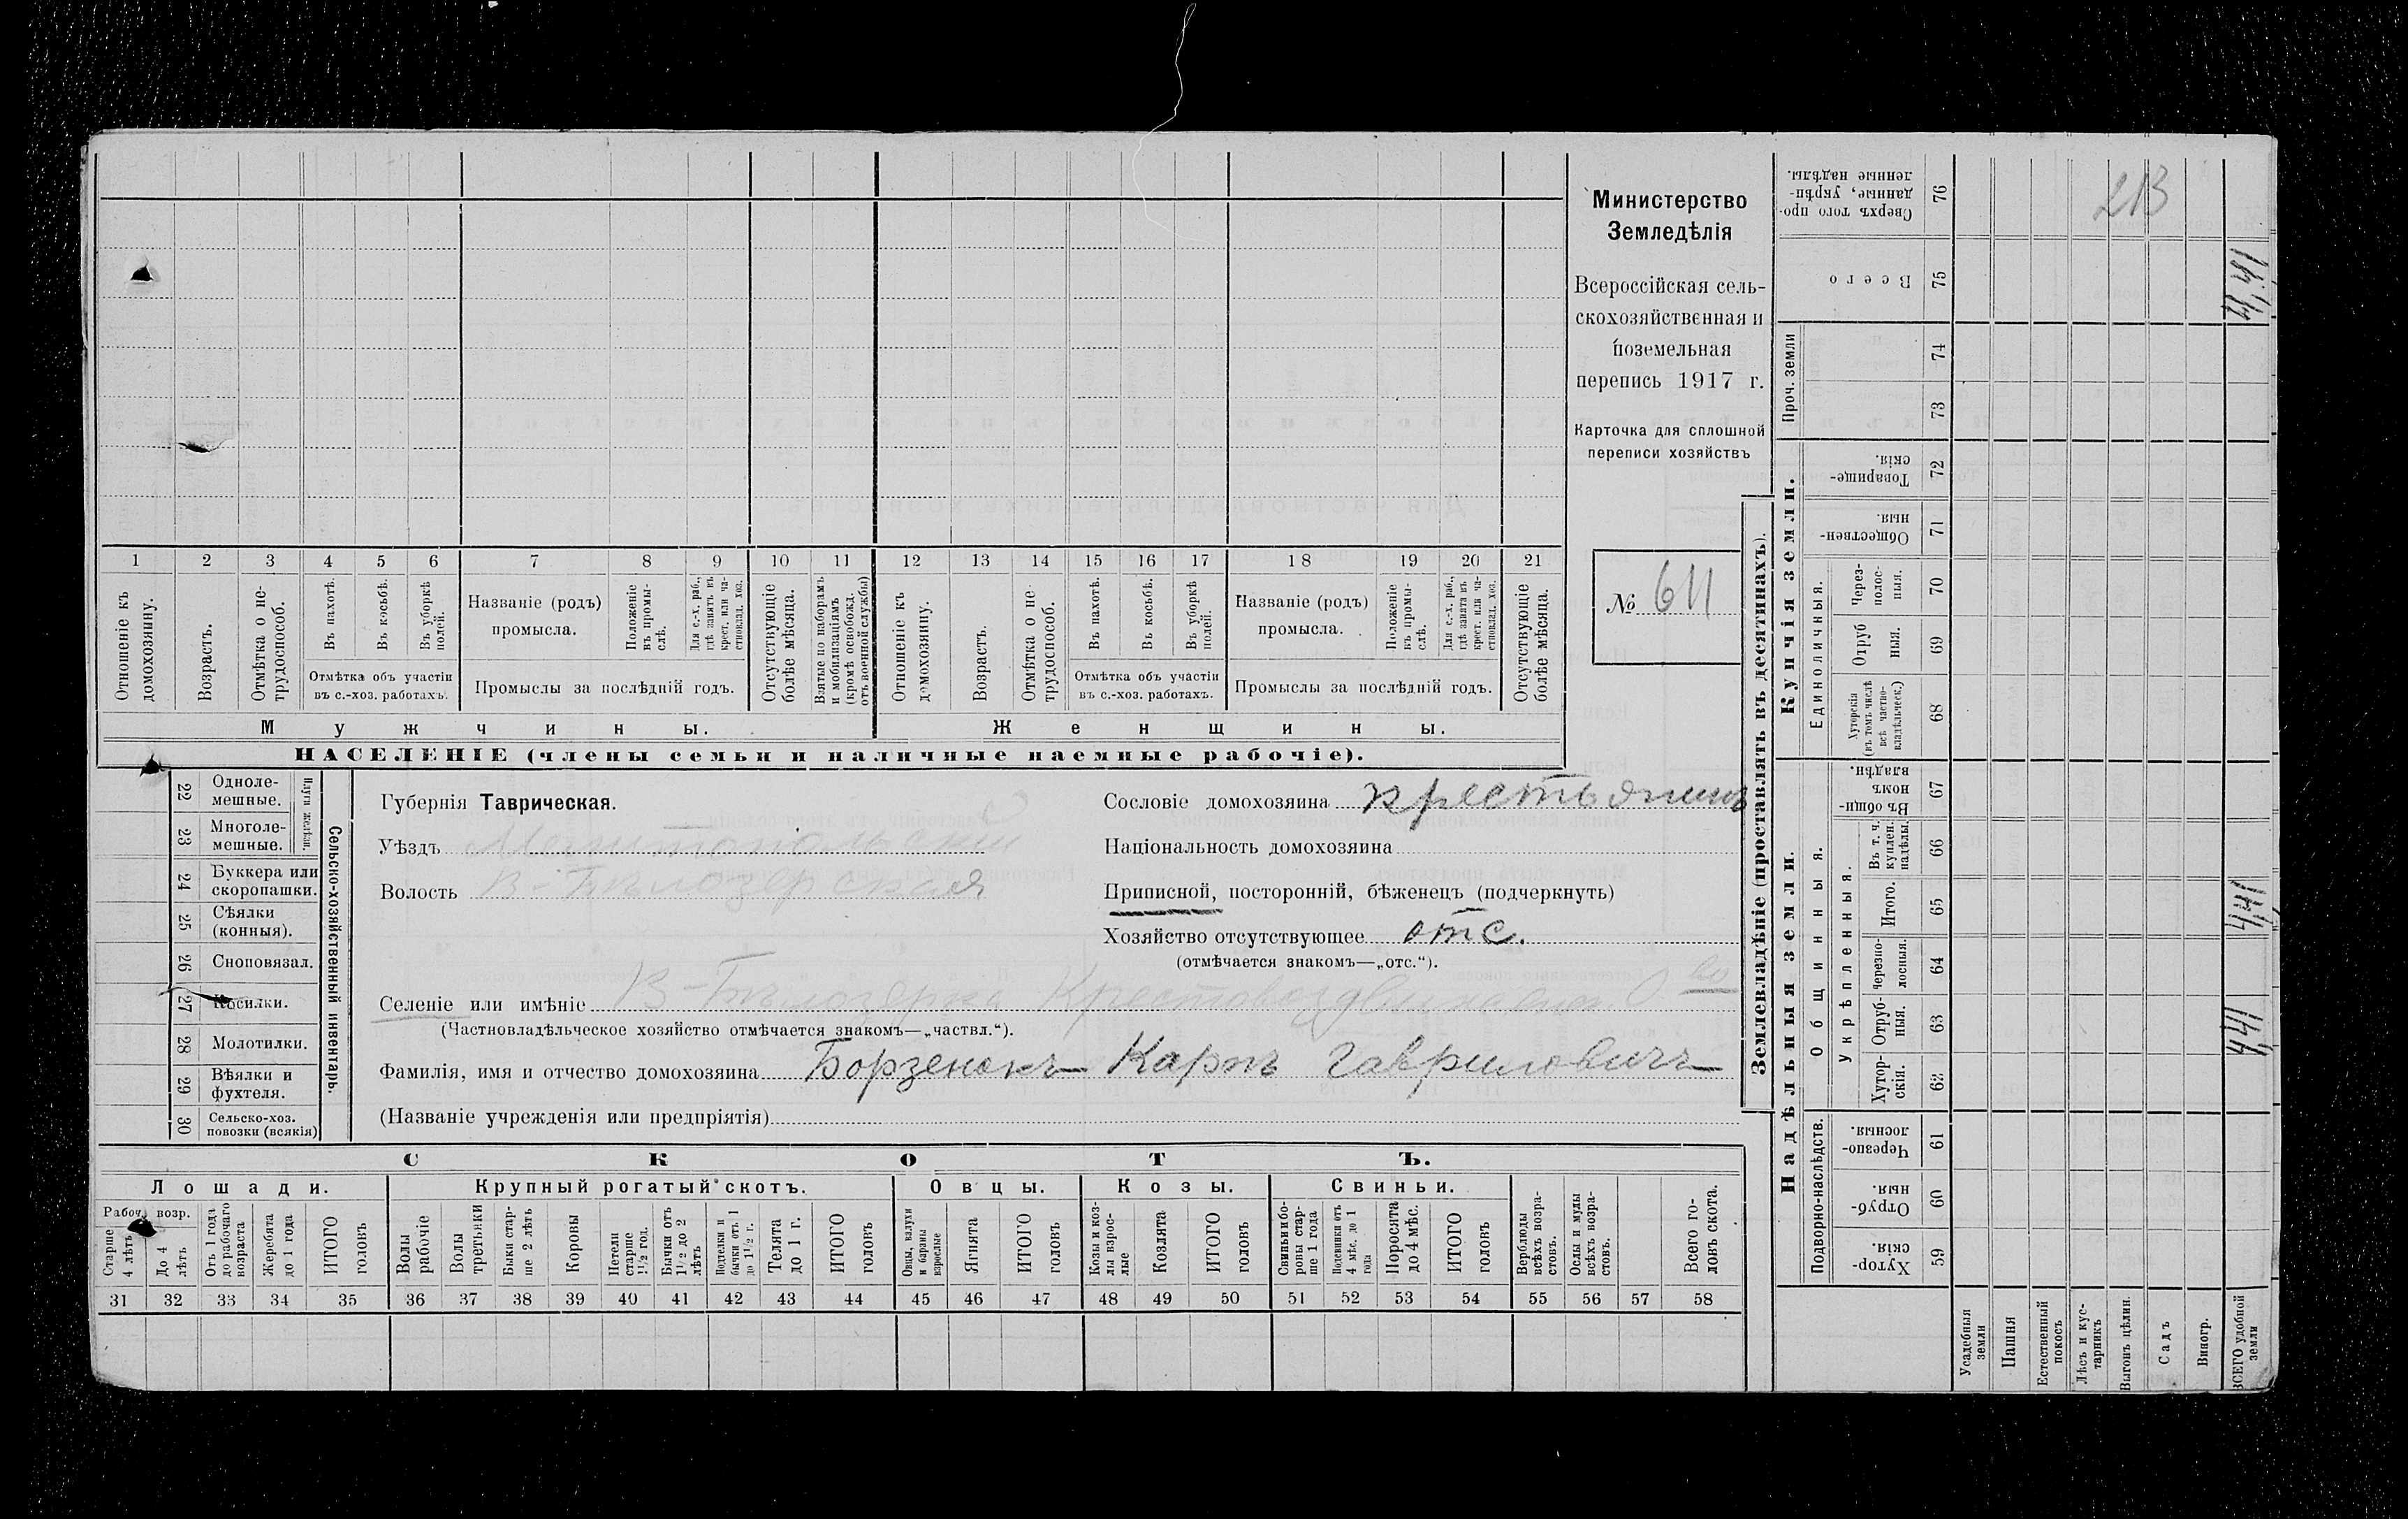 Министерство
Земледѣлія
Всероссійская сель-
скохозяйственная и
поземельная
перепись 1917 г.
Карточка для сплошной
переписи хозяйствъ
№ 611
1 2 3 4 5 6 7 8 9 10 11 12 13 14 15 16 17 18 19 20 21
Отношеніе къ домохозяину.
Возрастъ.
Отмѣтка о не-трудоспособ.
Въ пахотѣ.
Въ косьбѣ.
Въ уборкѣ полей.
Отмѣтка объ участіи
въ с.-хоз. работахъ.
Названіе (родъ)
промысла.
Положеніе въ промы-слѣ.
Для с.-х. раб., гдѣ занятъ въ крест. или ча-стновлад. хоз.
Промыслы за послѣдній годъ.
Отсутствующіе болѣе мѣсяца.
Взятые по наборамъ и мобилизаціямъ (кромѣ освобожд. отъ военной службы)
Отношеніе къ домохозяину.
Возрастъ.
Отмѣтка о не-трудоспособ.
Въ пахотѣ.
Въ косьбѣ.
Въ уборкѣ полей.
Отмѣтка объ участіи
въ с.-хоз. работахъ.
Названіе (родъ)
промысла.
Положеніе въ промы-слѣ.
Для с.-х. раб., гдѣ занята въ крест. или ча-стновлад. хоз.
Промыслы за послѣдній годъ.
Отсутствующіе болѣе мѣсяца.
Мужчины. Женщины.
НАСЕЛЕНІЕ (члены семьи и наличные наемные рабочіе).
22 Одноле-мешные.
23 Многоле-мешные.
Плуги желѣзн.
24 Буккера или скоропашки.
25 Сѣялки (конныя).
26 Сноповязал.
27 Косилки.
28 Молотилки.
29 Вѣялки и фухтеля.
30 Сельско-хоз. повозки (всякія)
Сельско-хозяйственный инвентарь.
Губернія Таврическая.
Уѣздъ Мелитопольскій
Волость В-Бѣлозерская
Сословіе домохозяина крестьянинъ
Національность домохозяина
Приписной, посторонній, бѣженецъ (подчеркнуть)
Хозяйство отсутствующее отс.
(отмѣчается знакомъ—„отс.“).
Селеніе или имѣніе В-Бѣлозерка Крестовоздвиженское О-во
(Частновладѣльческое хозяйство отмѣчается знакомъ—„частвл.“).
Фамилія, имя и отчество домохозяина Борзенокъ Карпъ Гавриловичъ
(Названіе учрежденія или предпріятія)
СКОТЪ.
Лошади. Крупный рогатый скотъ. Овцы. Козы. Свиньи.
Рабоч. возр.
Старше 4 лѣтъ
До 4 лѣтъ
Отъ 1 года до рабочаго возраста
Жеребята до 1 года
ИТОГО головъ
Волы рабочіе
Волы третьяки
Быки стар-ше 2 лѣтъ
Коровы
Нетели старше 1½ год.
Бычки отъ 1½ до 2 лѣтъ
Подѣлки и бычки отъ 1 до 1½ г.
Телята до 1 г.
ИТОГО головъ
Овцы, валухи и бараны взрослые
Ягнята
ИТОГО головъ
Козы и коз-лы взрос-лые
Козлята
ИТОГО головъ
Свиньи и бо-ровы стар-ше 1 года
Подсвинки отъ 4 мѣс. до 1 года
Поросята до 4 мѣс.
ИТОГО головъ
Верблюды всѣхъ возра-стовъ.
Ослы и мулы всѣхъ возра-стовъ.
Всего го-ловъ скота.
31 32 33 34 35 36 37 38 39 40 41 42 43 44 45 46 47 48 49 50 51 52 53 54 55 56 57 58
Землевладѣніе (проставлять въ десятинахъ).
Купчія земли.
Надѣльныя земли.
Сверхъ того про-данные, укрѣп-ленные надѣлы. 76
213
Всего 75
4,41
Проч. земли 74 73
Товарище-скія. 72
Обществен-ныя. 71
Единоличныя.
Через-полос-ныя. 70
Отруб ныя. 69
Хуторскія (въ томъ числѣ всѣ частно-владѣльческ.) 68
Общинныя.
Въ общин-номъ владѣн. 67
Укрѣпленныя.
Въ т. ч. куплен. надѣлы. 66
Итого. 65
4,41
Черезпо-лосныя. 64
Отруб-ныя. 63
4,41
Хутор-скія. 62
Подворно-наслѣдств.
Черезпо-лосныя. 61
Отруб-ныя. 60
Хутор-скія. 59
Усадебныя земли
Пашня
Естественный покосъ
Лѣсъ и кус-тарникъ
Выгонъ цѣлин.
Садъ
Виногр.
ВСЕГО удобной земли